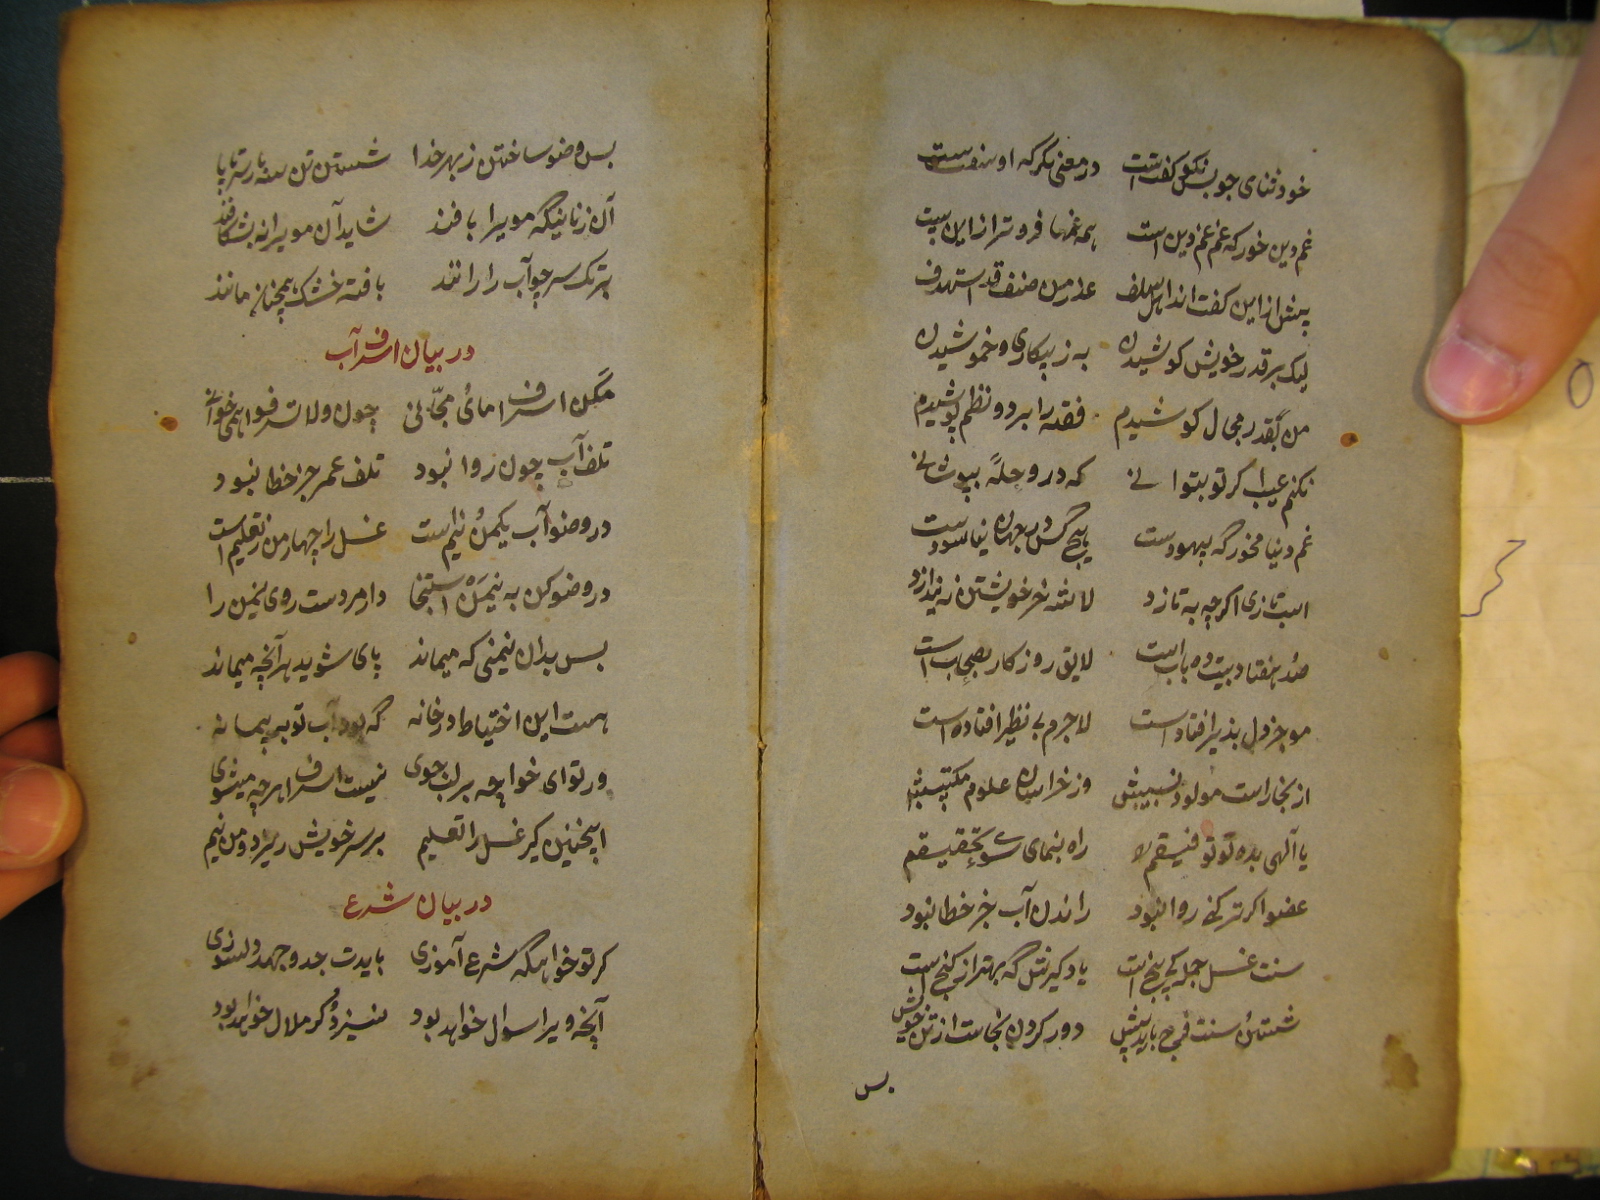 خود ثنای جو بس نکو کفت است در معنی نکر که او سفت است
غم دین خور که غم غم دین است همه غمها فروتر از این است
پیش از این کفت اند اهل سلف عذر من صنف قد استهدف
لیک بر قدر خویش کوشیدن به ز بیکاری و خموشیدن
من بقدر مجال کوشیدم فقه را بر دو نظم پوشیدم
نکنم عیب ار کر تو بتوانی که درو حله بپوشانی
غم دنیا مخور که بیهودست هیچ کس در جهان نیاسودست
اسب تازی اکرچه به تازد لاشه خر خویشتن نه نیدازد
صد هفتاد بیت ده باب است لایق روزکار اصحاب است
موجز دل پذیر افتادست لاجرم بی نظیر افتاده است
از بخار است مولود نسبیش وز خراسان علوم مکتسبش
یا آلهی بده تو توفیقم راه بنمای سوی تحقیقم
عضو اکر تر کنی روا نبود راندن آب جز خطا نبود
سنت غسل جمله کی پنج است یاد کیرش که بهتر از کنج است
شستن سنت فرج باید پیش دور کردن نجاست از تن خویش
بس
بس وضو ساختن ز بهر خدا شستن تن سه بار سر تا پا
آن زنانیکه مویرا بافند شاید آن مویرا نه بشکافند
بر تک سر چو آب را رانند بافته خشک همچنان مانند
در بیان اسراف آب
مکن اسراف اما ئ مجانی چون ولا تسرفوا همی خوانی
تلف آب چون روا نبود تلف عمر جز خطا نبود
در وضو آب یکمن و نیم است غسل را چهار من ز تعلیم است
در وضو کن به نیمن استنجا دار مر دست روی نیمن را
بس بدان نیمنی که میماند پای شوید هر آنچه میماند
هست این اختیاط در خانه که بود آب تو به پیمانه
ور تو ای خواجه بر لب جوی نیست اسراف هر چه میشوی
اینچنین کیر غسل را تعلیم بر سر خویش ریز دو من نیم
در بیان شرع
کر تو خواهیکه شرع آموزی بایدت جد و جهد و دلسوزی
آنچه ویرا سوال خواهد بود سیزد کر ملال خواهد بود